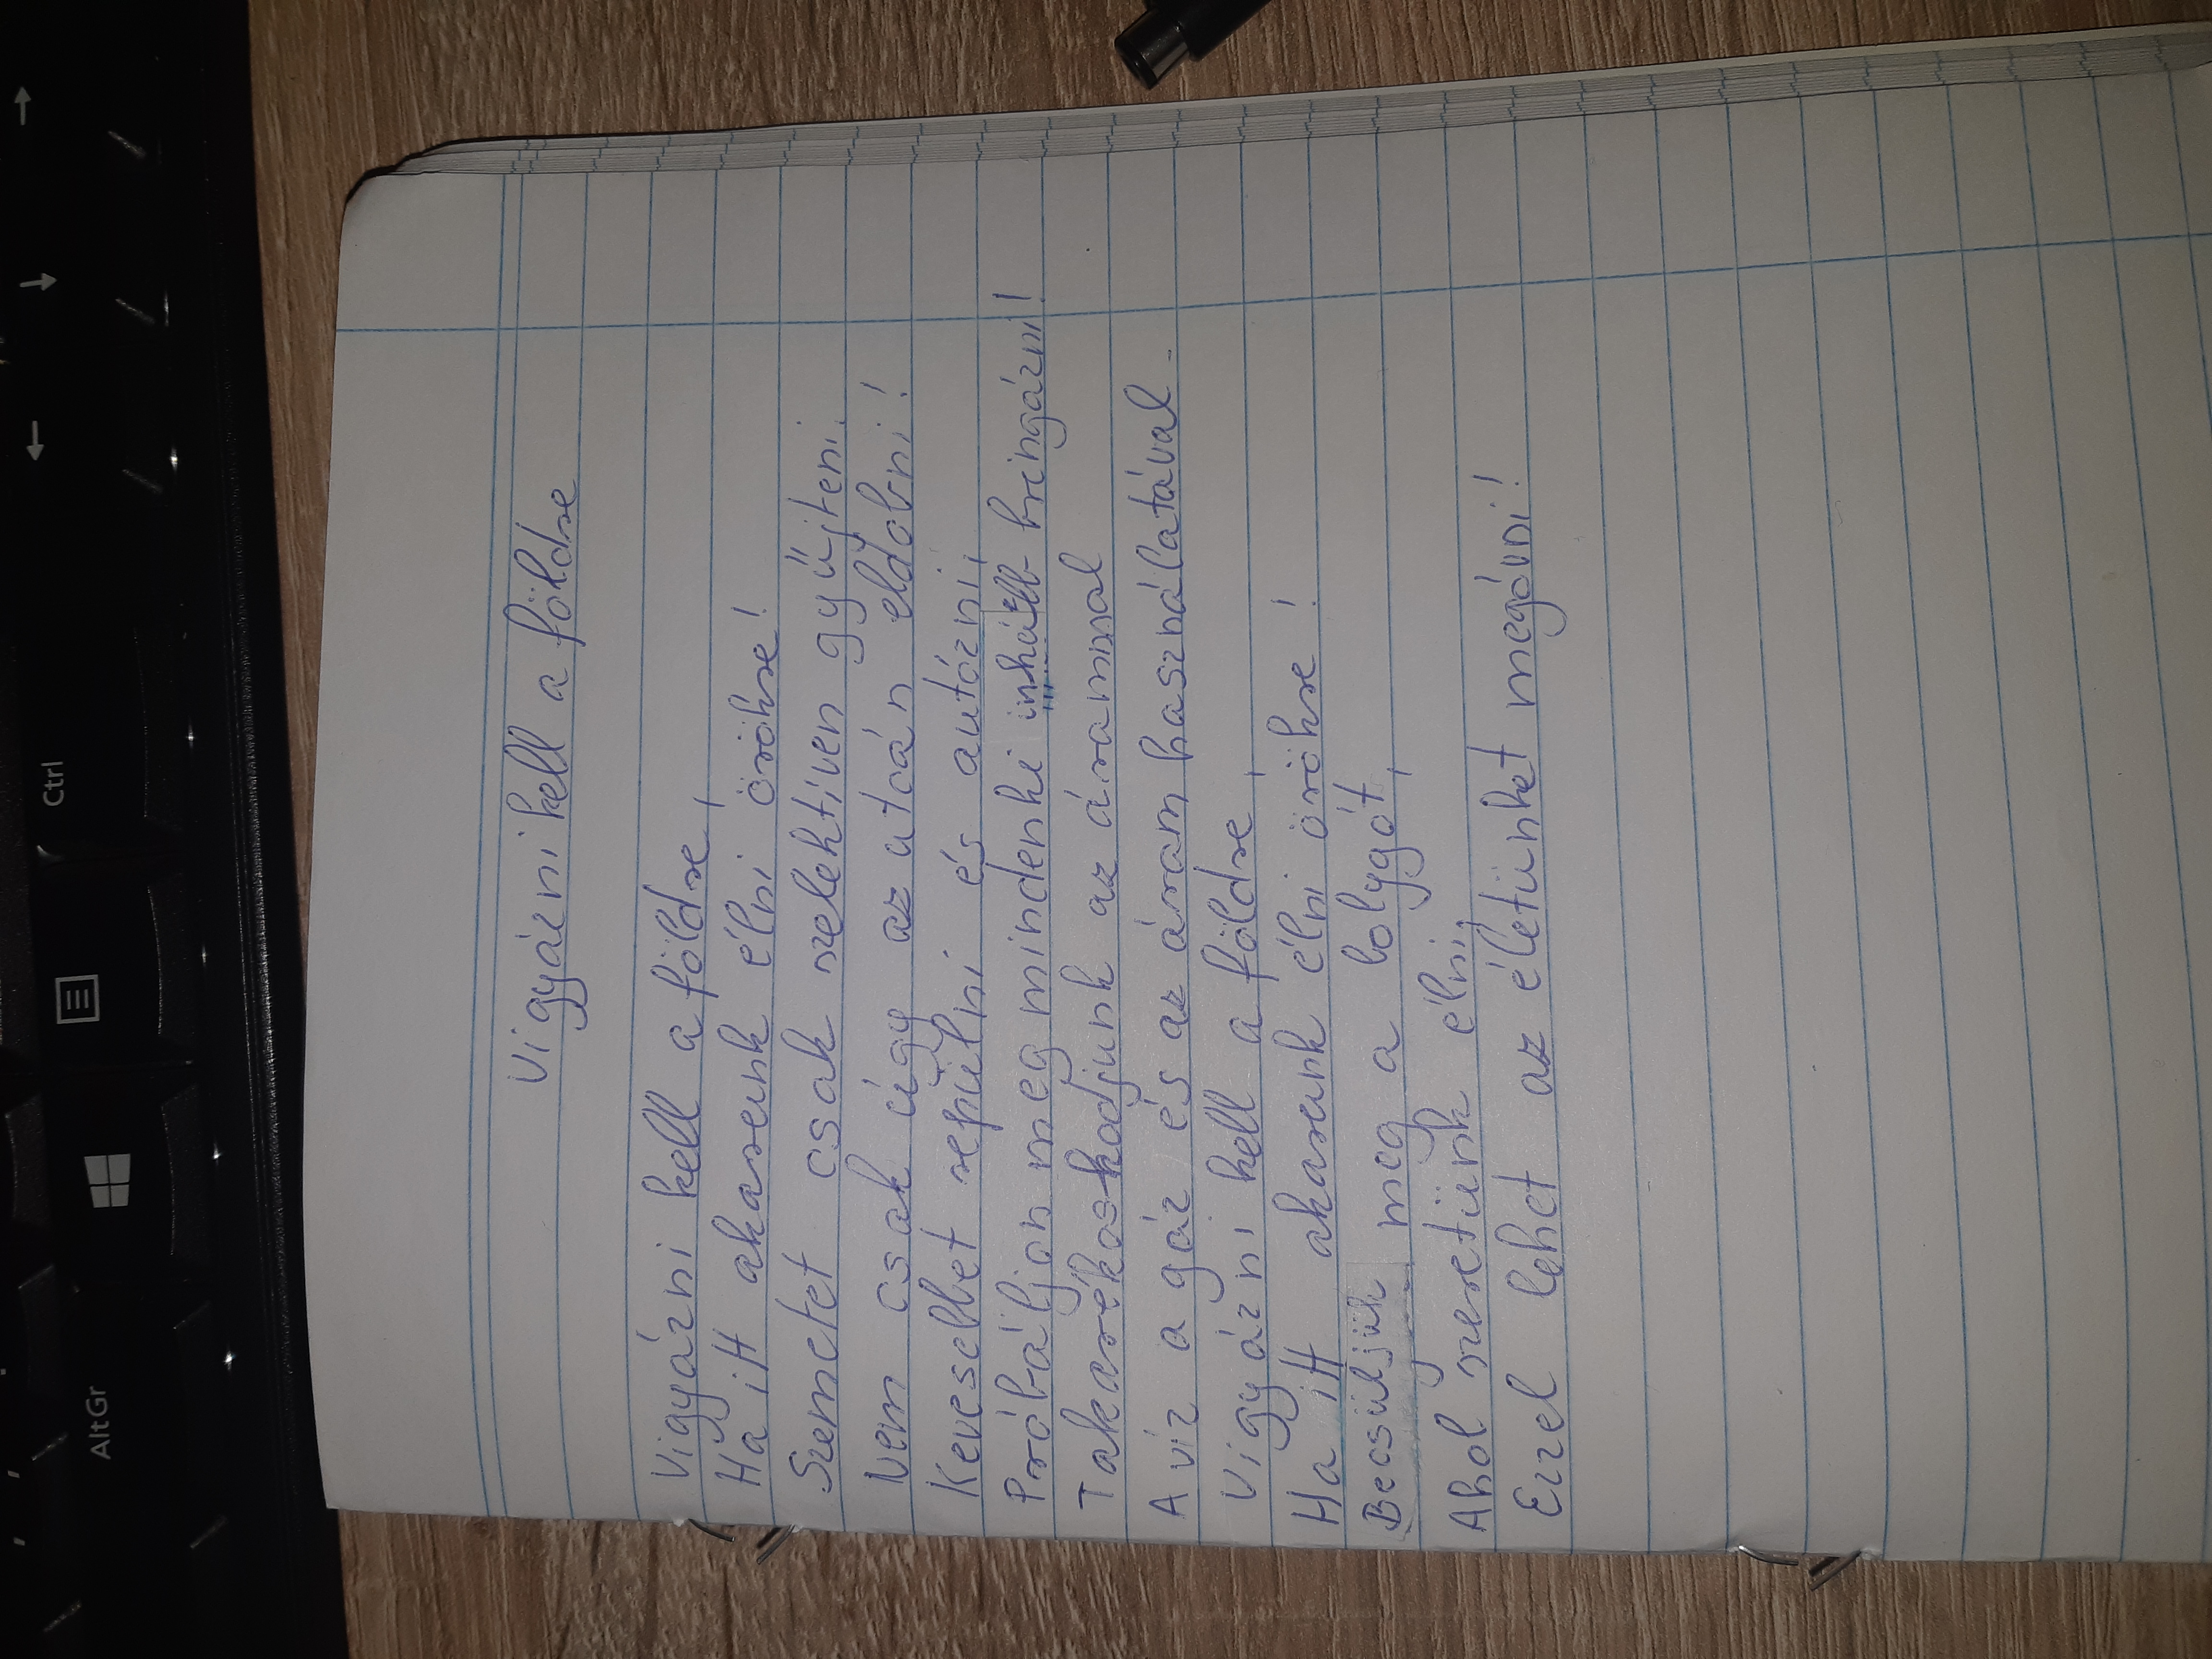 Vigyázni kell a földre
Vigyázni kell a földre,
Ha itt akarunk élni örökre!
Szemetet csak szelektíven gyűjteni.
Nem csak úgy az utcán eldobni!
Kevesebbet repülni és autózni,
Próbáljon meg mindenki inkább bringázni!
Takarékoskodjunk az árammal
A víz a gáz és az áram használatával.
Vigyázni kell a földre,
Ha itt akarunk élni örökre!
Becsüljük meg a bolygót,
Ahol szeretünk élni,
Ezzel lehet az életünket megóvni!
Ctrl
AltGr